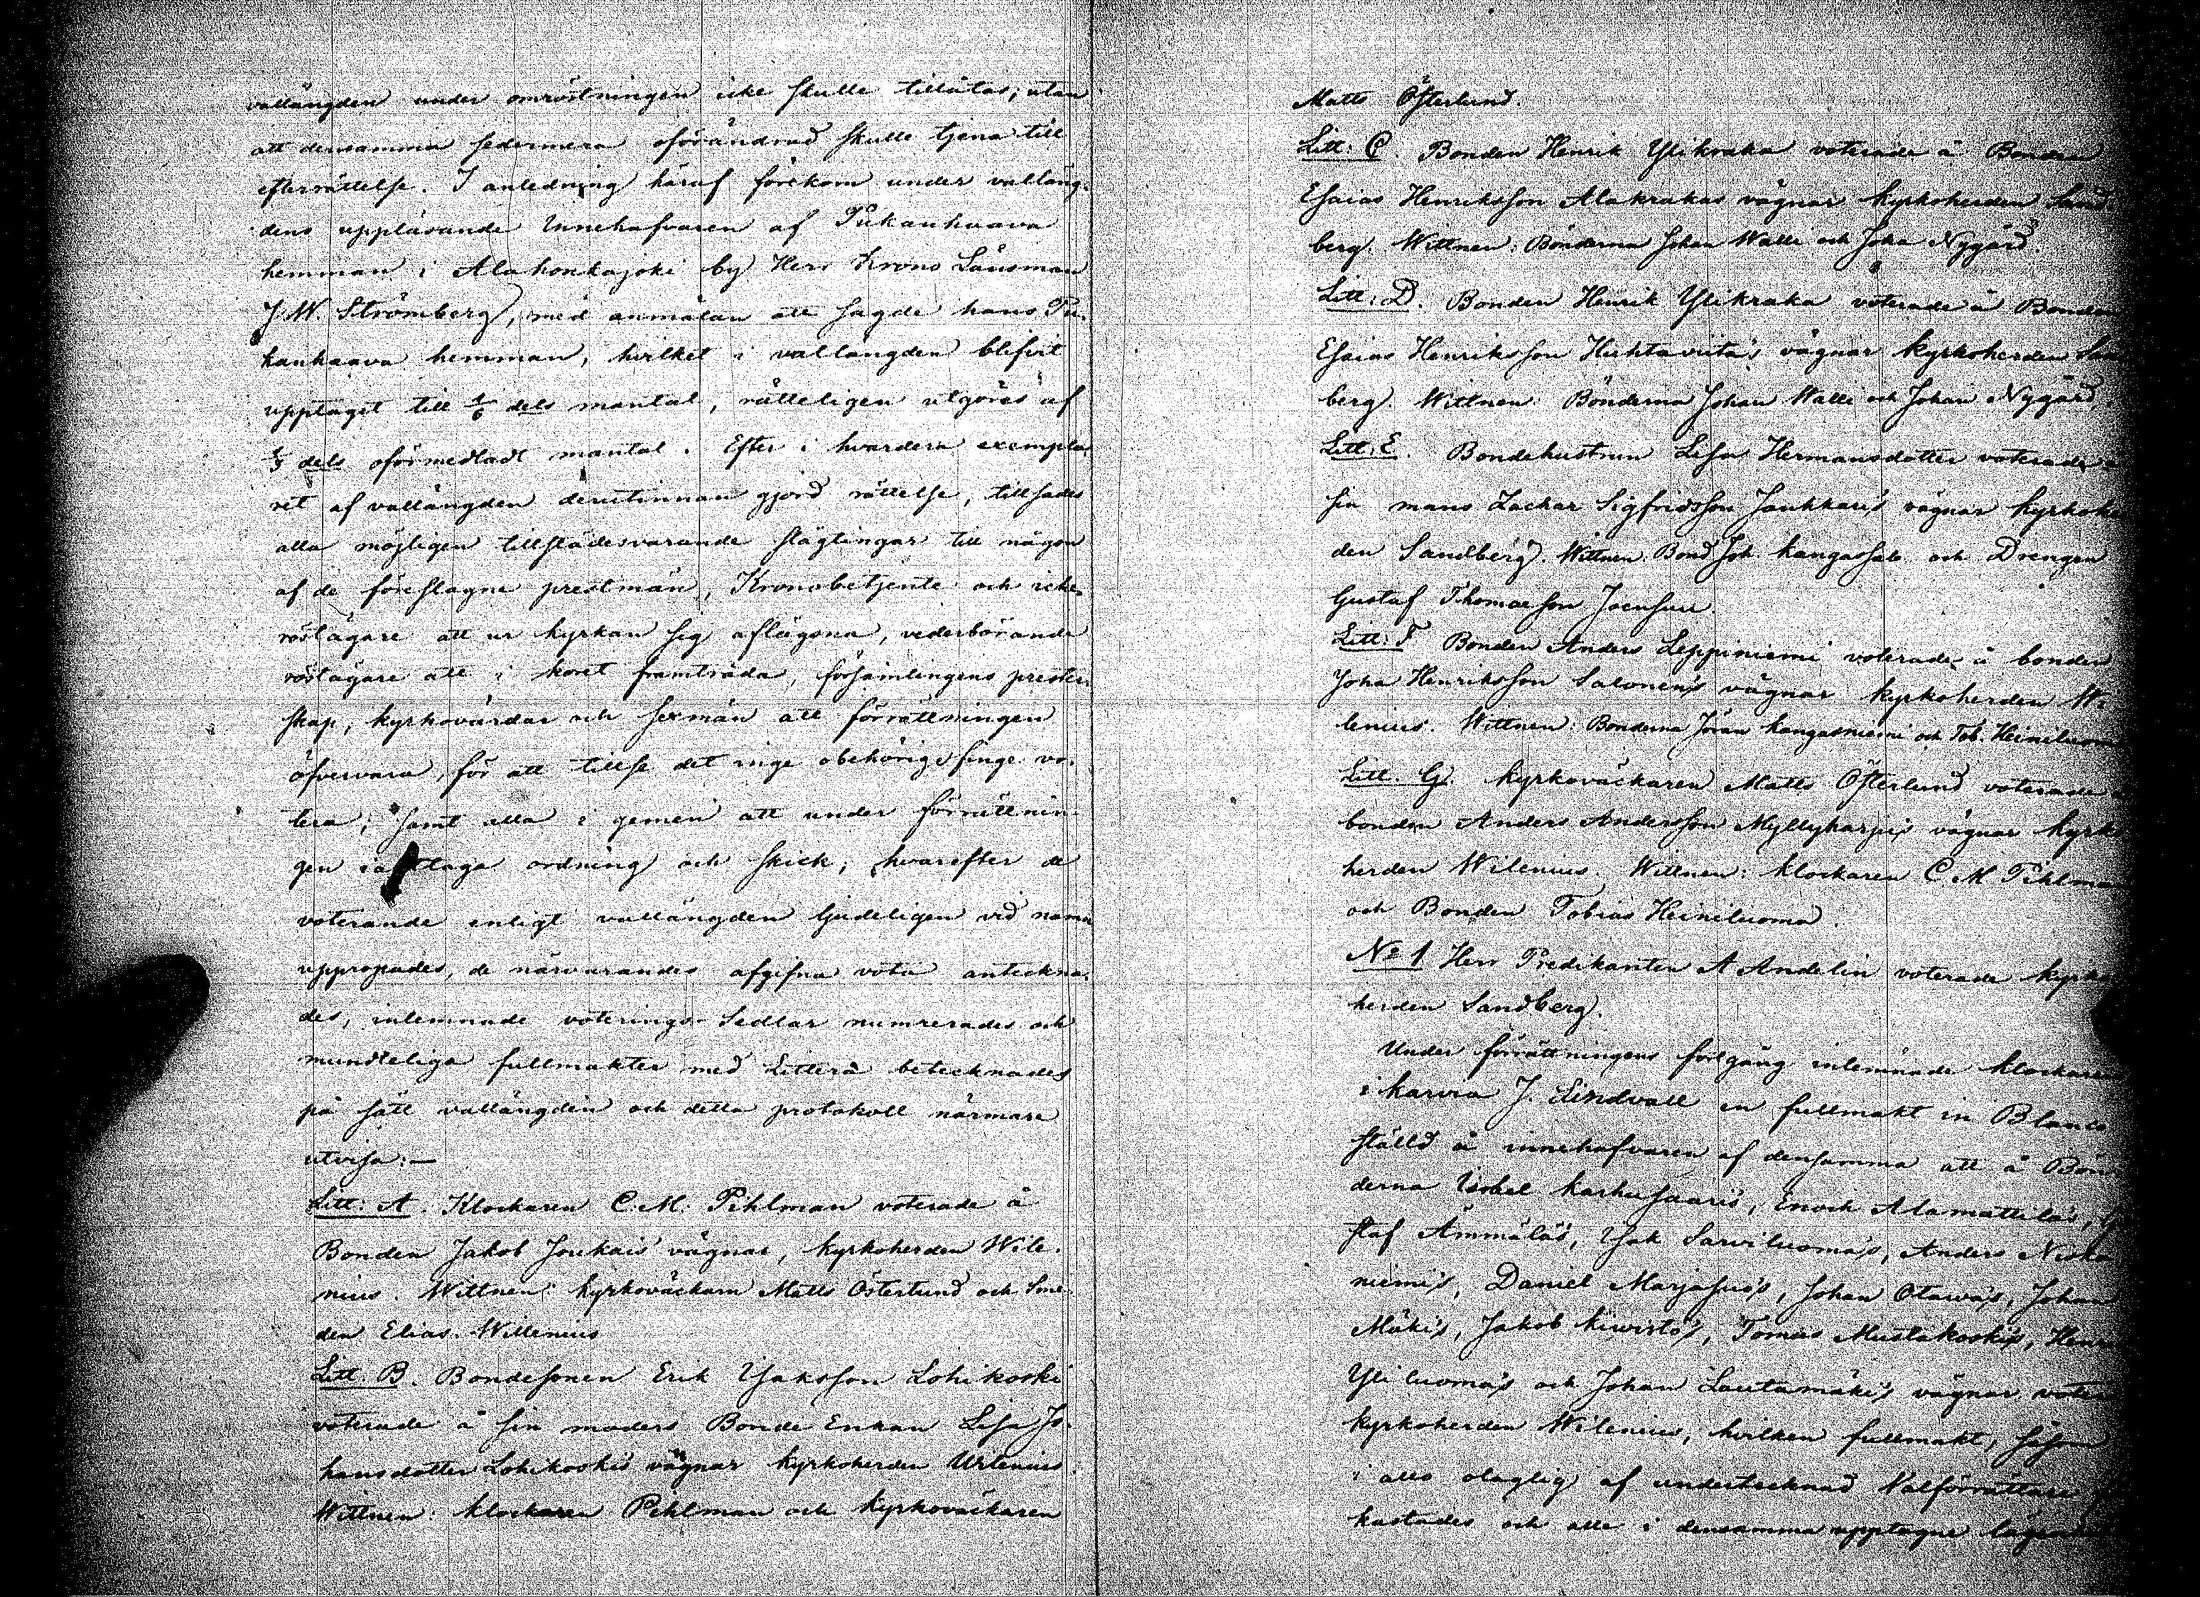 vallängden under omröstningen icke skulle tillåtas, utan
att densamma sedermera oförändrad skulle tjena till
efterrättelse. I anledning häraf förekom under valläng-
dens uppläsande Innehafvaren af Pukanhaava
hemman i Alahonkajoki by Herr Krono Länsman
J. W. Strömberg, med anmälan att sagde hans Pu-
kanhaava hemman, hvilket i vallängden blifvit
upptaget till 1/6 dels mantal, rätteligen utgöres af
1/3 dels oförmedladt mantal. Efter i hvardera exempla
ret af vallängden derutinnan gjord rättelse, tillsades
alla möjligen tillstädesvarande slägtingar till någon
af de föreslagne prestmän, Kronobetjente och icke
röstägare att ur kyrkan sig aflägsna, vederbörande
röstägare att i koret framträda, församlingens prester-
skap, kyrkovärdar och sexmän att förrättningen
öfvervara, för att tillse det inge obehörige finge vo-
tera; samt alla i gemen att under förrättnin-
gen iakttaga ordning och skick; hvarefter de
voterande enligt vallängden ljudeligen vid namn
uppropades, de närvarandes afgifna vota anteckna-
des, inlemnade voterings Sedlar numrerades och
mundteliga fullmakter med Littera betecknades
på sätt vallängden och detta protokoll närmare
utvisa:—
Litt: A. Klockaren C. M. Pihlman voterade å
Bonden Jakob Joukais vägnar, kyrkoherden Wile-
nius. Wittnen: kyrkoväckarn Matts Österlund och Sme-
den Elias Willenius
Litt. B. Bondesonen Erik Isaksson Lohikoski
voterade å sin moders Bonde Enkan Lisa Jo-
hansdotter Lohikoskis vägnar kyrkoherden Wilenius.
Wittnen: klockaren Pihlman och kyrkoväckaren
Matts Österlund.
Litt: C. Bonden Henrik Ylikraka voterade å Bonden
Esaias Henriksson Alakrakas vägnar kyrkoherden Sand-
berg. Wittnen: Bönderna Johan Walli och Joha Nygård.
Litt: D. Bonden Henrik Ylikraka voterade å Bonden
Esaias Henriksson Huhtaviita's vägnar kyrkoherden San
berg. Wittnen Bönderna Johan Walli och Johan Nygård.
Litt: E. Bondehustrun Lisa Hermansdotter voterade å
sin mans Zachar Sigfridsson Jaukkari's vägnar kyrkohe
den Sandberg. Wittnen. Bond Joh kangassalo och Drengen
Gustaf Thomasson Joensuu
Litt: F Bonden Anders Leppiniemi voterade å bonden
Joha Henriksson Salonen's vägnar kyrkoherden Wi-
lenius. Wittnen: Bönderna Jöran kangasniemi och Tob. Heiniluoma
Litt. G. kyrkoväckaren Matts Österlund voterade å
bonden Anders Andersson Myllykarpi's vägnar kyrko
herden Wilenius. Wittnen: klockaren C. M Pihlman
och Bonden Tobias Heiniluoma.
No 1 Herr Predikanten A Andelin voterade kyrko
herden Sandberg.
Under förrättningens fortgång inlemnade klockaren
i karvia J. Lindvall en fullmakt in Blanco
ställd å innehafvaren af densamma att å Bön
derna Isakel karhusaari's, Enoch Alamattila's, G
staf Ämmälä's, Isak Sarviluoma's, Anders
niemi's, Daniel Marjasuo's, Johan Otawa's, Johan
Mäki's, Jakob kiwistö's, Tomas Mustakoski's, Henri
Yli luoma's och Johan Lautamäki's vägnar voter
kyrkoherden Wilenius, hvilken fullmakt, såsom
i allo olaglig af undertecknad Valförrättare
kastades och alle i densamma upptagne